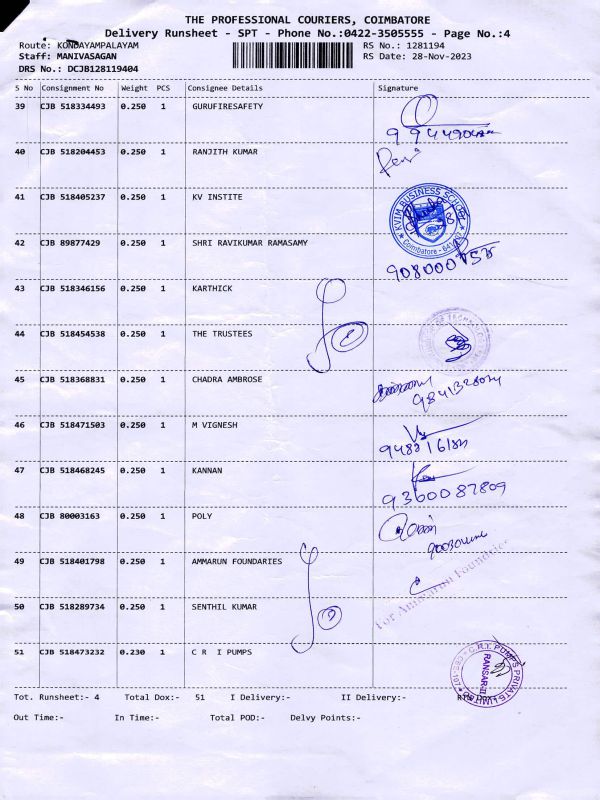 THE PROFESSIONAL COURIERS, COIMBATORE
Delivery Runsheet - SPT - Phone No.:0422-3505555 - Page No.:4
Route: KONDAYAMPALAYAM RS No.: 1281194
Staff: MANIVASAGAN RS Date: 28-Nov-2023
DRS No.: DCJB128119404
S No Consignment No Weight PCS Consignee Details Signature
39 CJB 518334493 0.250 1 GURUFIRESAFETY
40 CJB 518204453 0.250 1 RANJITH KUMAR
41 CJB 518405237 0.250 1 KV INSTITE
KVIM BUSINESS SCHOOL
Coimbatore
42 CJB 89877429 0.250 1 SHRI RAVIKUMAR RAMASAMY
43 CJB 518346156 0.250 1 KARTHICK
44 CJB 518454538 0.250 1 THE TRUSTEES
45 CJB 518368831 0.250 1 CHADRA AMBROSE
46 CJB 518471503 0.250 1 M VIGNESH
47 CJB 518468245 0.250 1 KANNAN
9360087809
48 CJB 80003163 0.250 1 POLY
49 CJB 518401798 0.250 1 AMMARUN FOUNDARIES
For Ammarun Foundries
50 CJB 518289734 0.250 1 SENTHIL KUMAR
51 CJB 518473232 0.230 1 C R I PUMPS
C.R.I. PUMPS PRIVATE LIMITED
Tot. Runsheet:- 4 Total Dox:- 51 I Delivery:- II Delivery:-
Out Time:- In Time:- Total POD:- Delvy Points:-